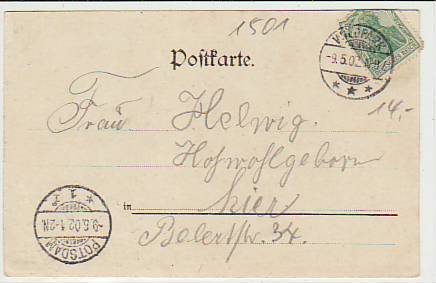 1501
Postkarte.
WILDPARK
-9.5.02
14.-
Frau Helwig.
Hochwohlgeboren
in hier
Balerstr. 34.
* 1 *
-9.5.02.1-2N
POTSDAM